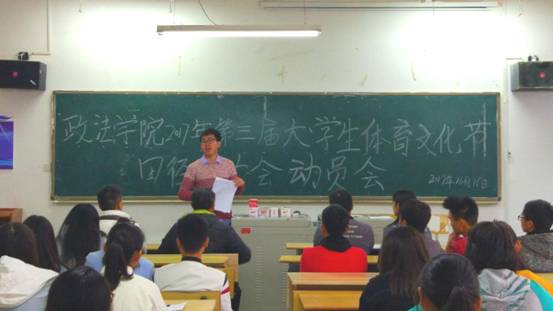 政法学院2017年第三届大学生体育文化节
田径 会动员会
2017年10月16日